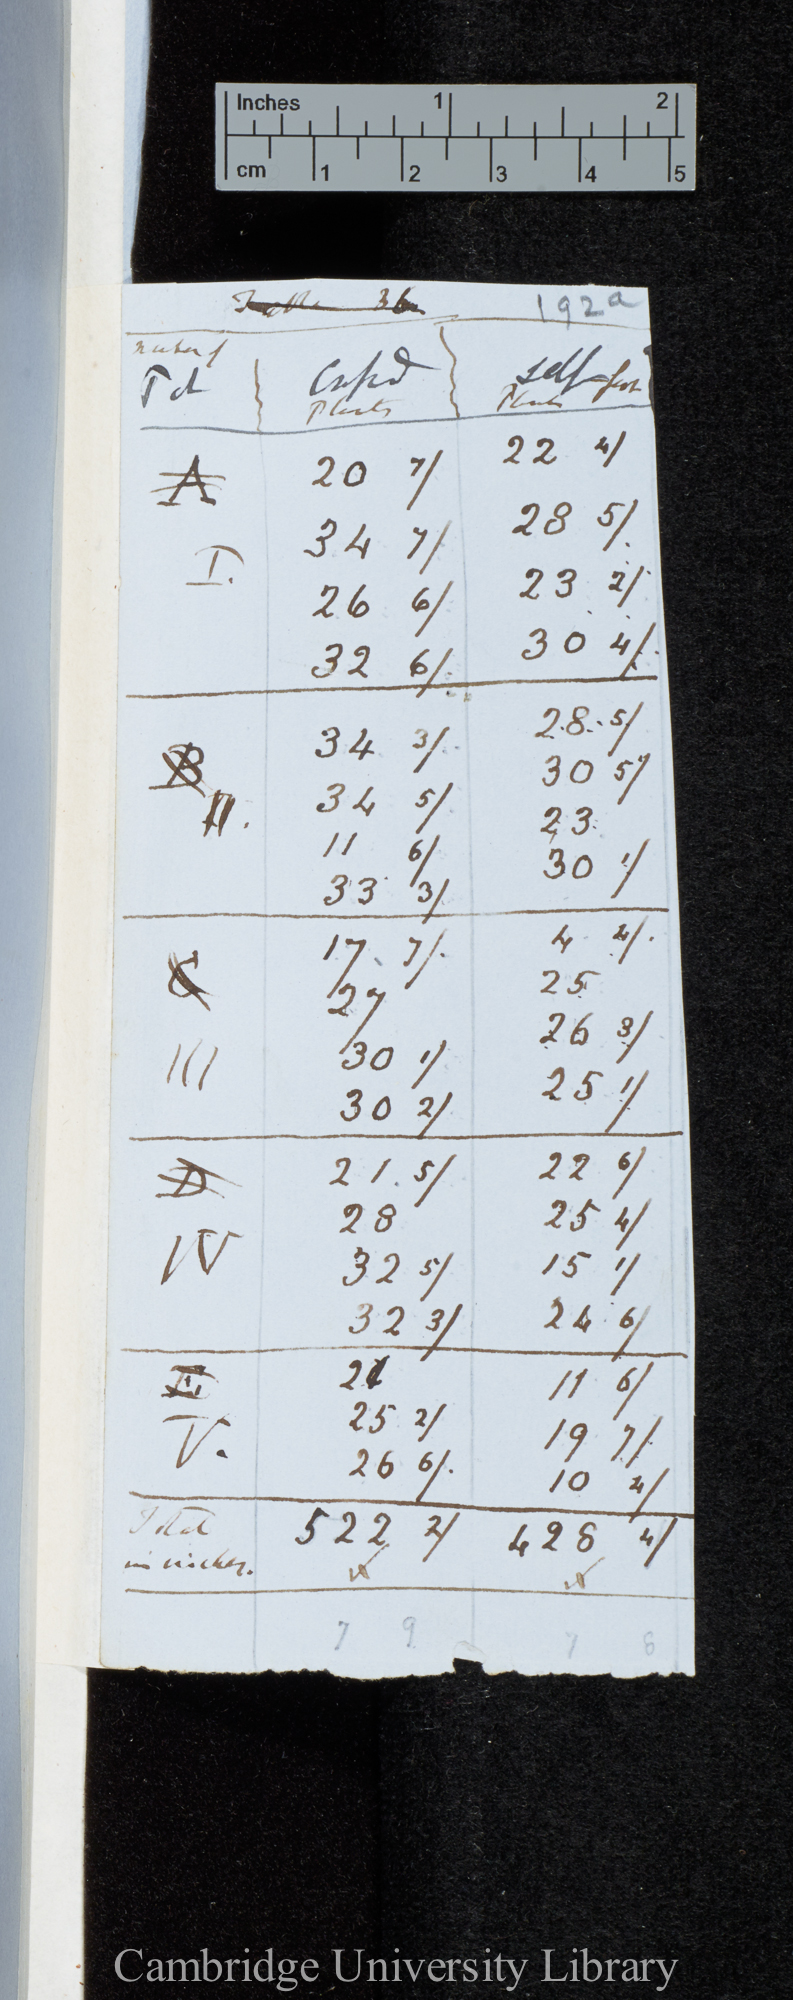 Inches 1 2
cm 1 2 3 4 5
Table 36 192a
number of
Pot Crossed self-fert
Plants Plants
A 20 7/ 22 4/
I. 34 7/ 28 5/
26 6/ 23 2/
32 6/ 30 4/
B 34 3/ 28 5/
II. 34 5/ 30 5/
11 6/ 23
33 3/ 30 1/
C 17 7/ 4 4/
27 25
III 30 1/ 26 3/
30 2/ 25 1/
D 21 5/ 22 6/
28 25 4/
IV 32 5/ 15 1/
32 3/ 24 6/
E 21 11 6/
V. 25 2/ 19 7/
26 6/ 10 4/
Total 522 2/ 428 4/
in inches.
7 9 7 8
Cambridge University Library